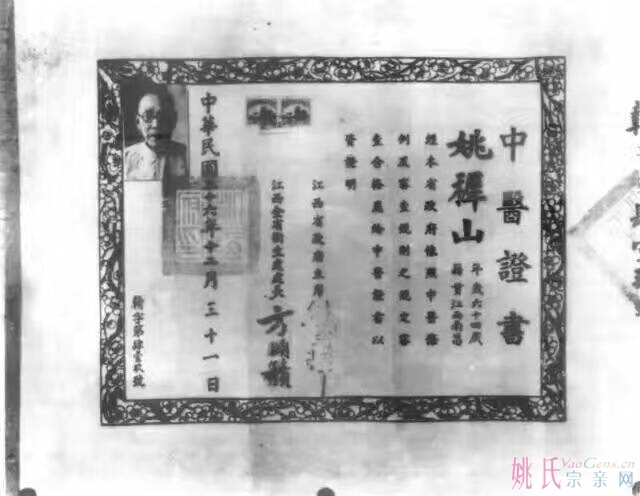 中醫證書
姚稺山
年歲六十四歲
籍貫江西南昌
經本省政府依照中醫條
例及審查規則之規定審
查合格應給中醫證書以
資證明
江西省政府主席
江西全省衛生處處長
方頤積
中華民國三十六年十二月三十一日
贛字第肆壹玖號
姚氏宗亲网
YaoGens.cn